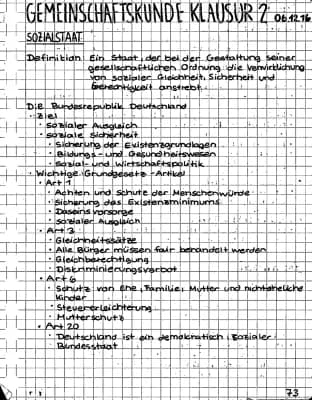 GEMEINSCHAFTSKUNDE KLAUSUR 2 06.12.16
SOZIALSTAAT
Definition: Ein Staat, der bei der Gestaltung seiner
gesellschaftlichen Ordnung die Verwirklichung
von sozialer Gleichheit, Sicherheit und
Gerechtigkeit anstrebt.
Die Bundesrepublik Deutschland
• Ziel
• Sozialer Ausgleich
• soziale Sicherheit
• Sicherung der Existenzgrundlagen
• Bildungs- und Gesundheitswesen
• Sozial- und Wirtschaftspolitik
• Wichtige Grundgesetz-Artikel
• Art 1
• Achten und Schutz der Menschenwürde
• Sicherung des Existenzminimums
• Daseinsvorsorge
• Sozialer Ausgleich
• Art 3
• Gleichheitssätze
• Alle Bürger müssen fair behandelt werden
• Gleichberechtigung
• Diskriminierungsverbot
• Art 6
• Schutz von Ehe, Familie, Mutter und nichteheliche
Kinder
• Steuererleichterung
• Mutterschutz
• Art 20
• Deutschland ist ein demokratisch, sozialer
Bundesstaat
73